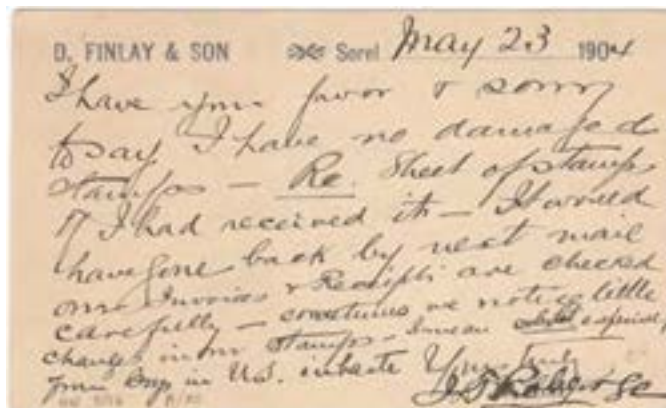 D. FINLAY & SON Sorel May 23 1904
I have your favor & sorry
to say I have no damaged
stamps - Re. Sheet of stamps
If I had received it - It would
have gone back by next mail
our Invoices & Receipts are checked
carefully - sometimes we notice little
change in our stamps - I mean
from in U.S. Yours truly